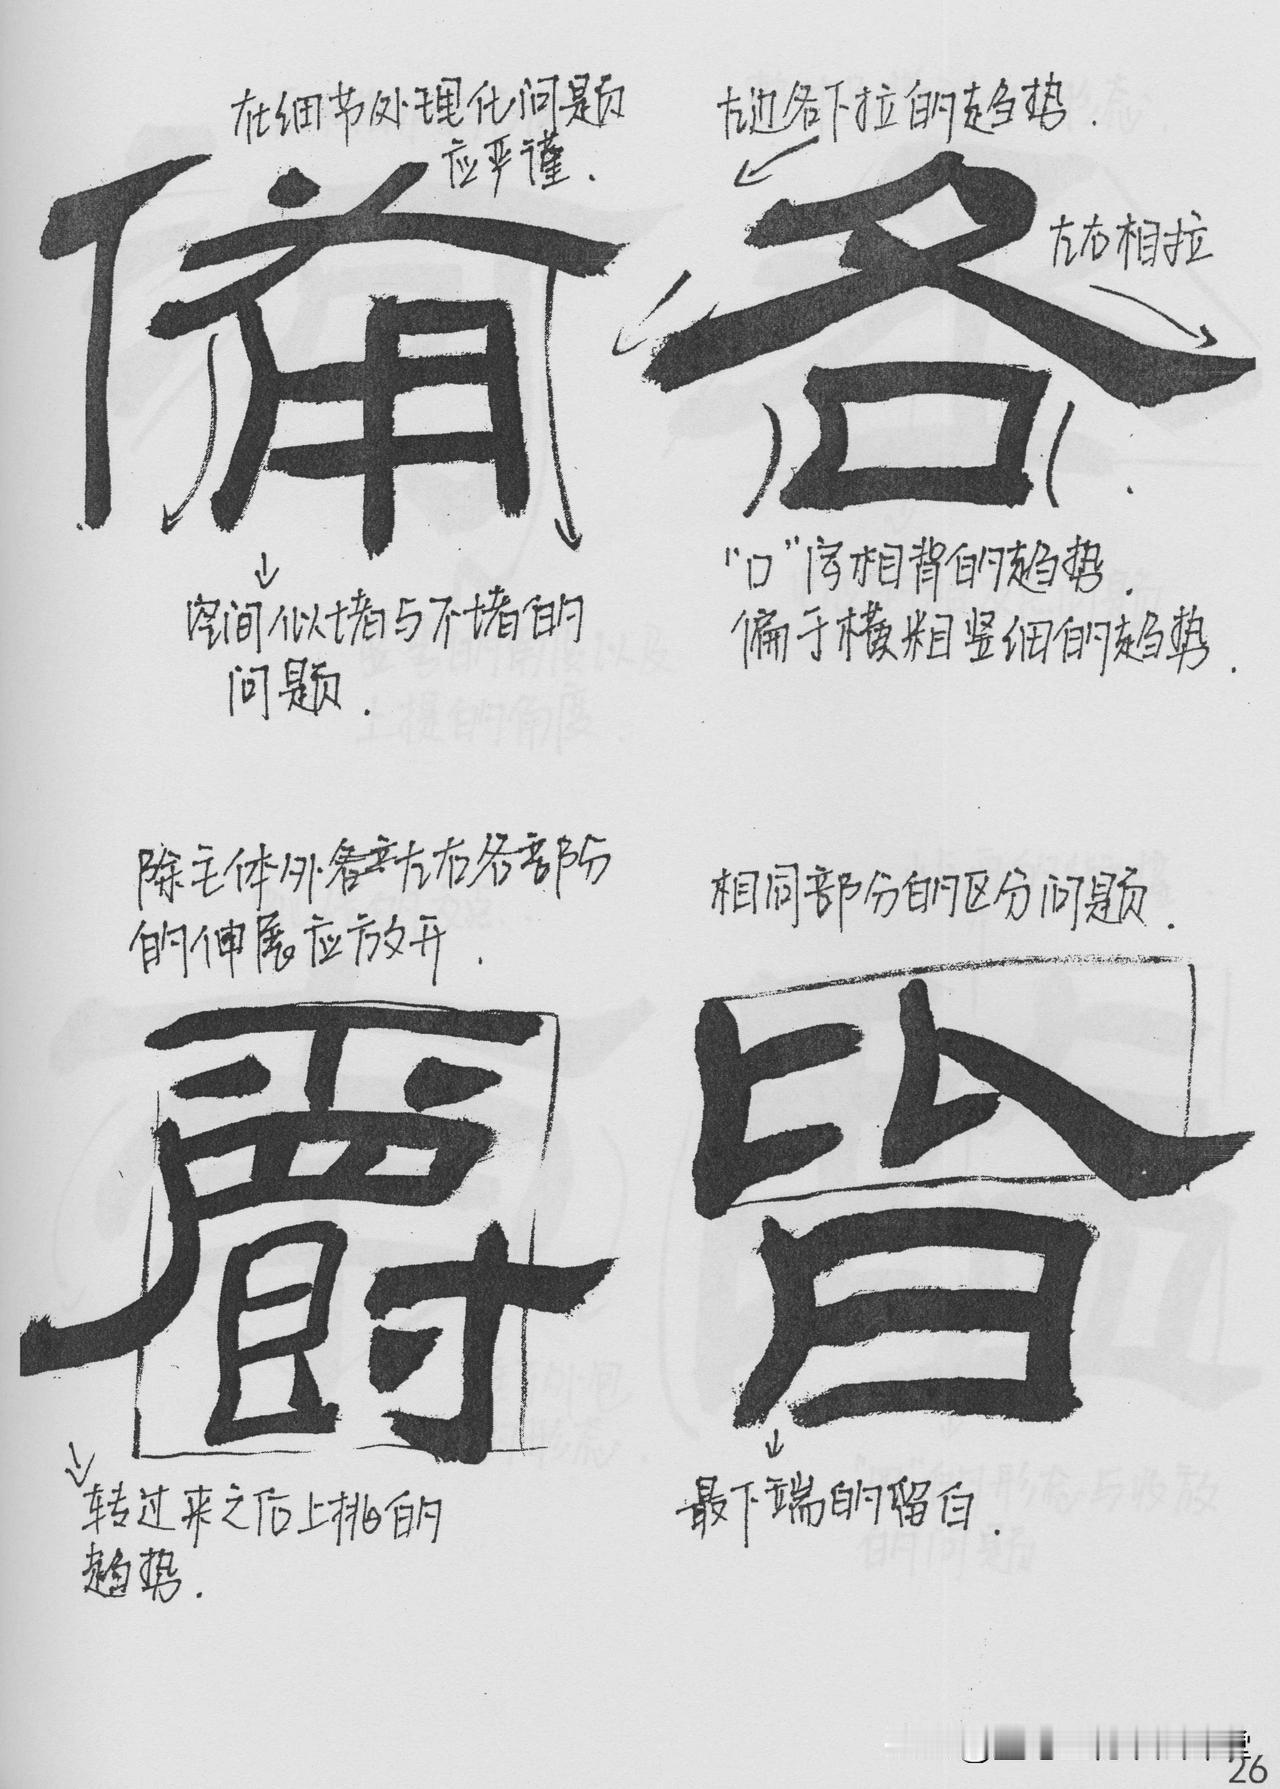 在细节处理化问题
应严谨.
備
空间似堵与不堵的
问题.
左边各下拉的趋势.
各
左右相拉
"口"字相背的趋势.
偏于横粗竖细的趋势.
除主体外左右各部份
的伸展应放开.
爵
转过来之后上挑的
趋势.
相同部分的区分问题.
皆
最下端的留白.
26